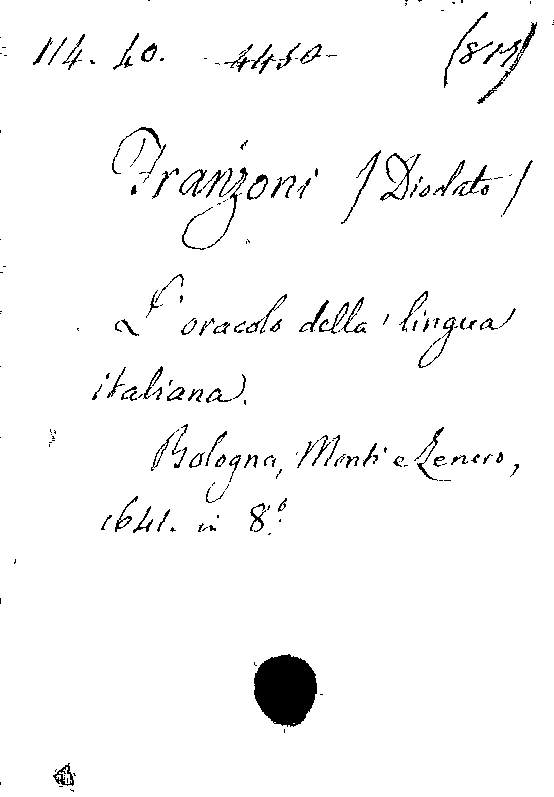 114. 40. 4450
Franzoni (Diodato)
L'oracolo della lingua
italiana.
Bologna, Monti e Zenero,
1641. in 8.º